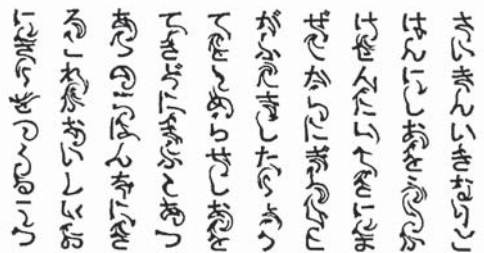 さいきんいきなりご
はんにしおをふりか
けぜんたいてきにま
ぜてからにぎるひと
がふえましたりょう
てをしめらせしおを
てきどにまぶしあつ
あつのごはんをにぎ
るこれがおいしいお
にぎりをつくるこつ